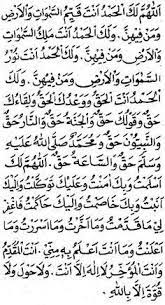 اَللّٰهُمَّ لَكَ الْحَمْدُ اَنْتَ قَيِّمُ السَّمٰوَاتِ وَالْاَرْضِ
وَمَنْ فِيْهِنَّ. وَلَكَ الْحَمْدُ اَنْتَ مَلِكُ السَّمٰوَاتِ
وَالْاَرْضِ وَمَنْ فِيْهِنَّ. وَلَكَ الْحَمْدُ اَنْتَ نُوْرُ
السَّمٰوَاتِ وَالْاَرْضِ وَمَنْ فِيْهِنَّ. وَلَكَ
الْحَمْدُ اَنْتَ الْحَقُّ وَوَعْدُكَ الْحَقُّ وَلِقَاؤُكَ
حَقٌّ وَقَوْلُكَ حَقٌّ وَالْجَنَّةُ حَقٌّ وَالنَّارُ حَقٌّ
وَالنَّبِيُّوْنَ حَقٌّ وَمُحَمَّدٌ صَلَّى اللهُ عَلَيْهِ
وَسَلَّمَ حَقٌّ وَالسَّاعَةُ حَقٌّ. اَللّٰهُمَّ لَكَ
اَسْلَمْتُ وَبِكَ اٰمَنْتُ وَعَلَيْكَ تَوَكَّلْتُ وَاِلَيْكَ
اَنَبْتُ وَبِكَ خَاصَمْتُ وَاِلَيْكَ حَاكَمْتُ فَاغْفِرْ
لِيْ مَا قَدَّمْتُ وَمَا اَخَّرْتُ وَمَا اَسْرَرْتُ وَمَا
اَعْلَنْتُ وَمَا اَنْتَ اَعْلَمُ بِهِ مِنِّيْ. اَنْتَ الْمُقَدِّمُ
وَاَنْتَ الْمُؤَخِّرُ لَا اِلٰهَ اِلَّا اَنْتَ. وَلَا حَوْلَ وَلَا
قُوَّةَ اِلَّا بِاللهِ.